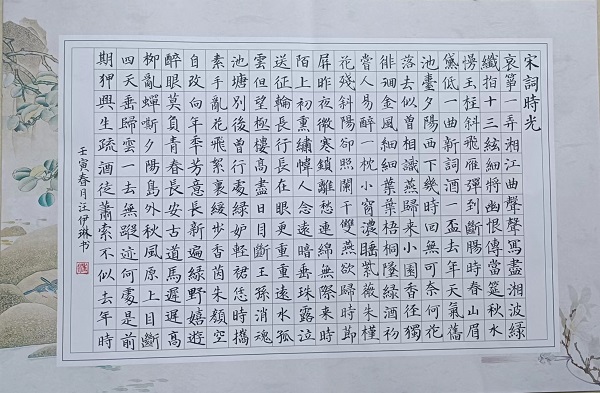 宋詞時光
哀箏一弄湘江曲聲聲寫盡湘波綠
纖指十三絃細將幽恨傳當筵秋水
慢玉柱斜飛雁彈到斷腸時春山眉
黛低一曲新詞酒一盃去年天氣舊
池臺夕陽西下幾時回無可奈何花
落去似曾相識燕歸來小園香徑獨
徘徊金風細細葉葉梧桐墜綠酒初
嘗人易醉一枕小窗濃睡紫薇朱槿
花殘斜陽卻照闌干雙燕欲歸時節
屏昨夜微寒鎖離愁連綿無際來時
陌上初熏繡幃人念遠暗垂珠露泣
送征輪長行長在眼更重重遠水孤
雲但望極樓高盡日目斷王孫消魂
池塘別後曾行處綠妒輕裙恁時攜
素手亂花飛絮裏緩步香茵朱顏空
自改向年年芳意長新遍綠野嬉遊
醉眼莫負青春長安古道馬遲遲高
柳亂蟬嘶夕陽鳥外秋風原上目斷
四天垂歸雲一去無蹤迹何處是前
期狎興生疏酒徒蕭索不似去年時
壬寅春月汪伊琳书